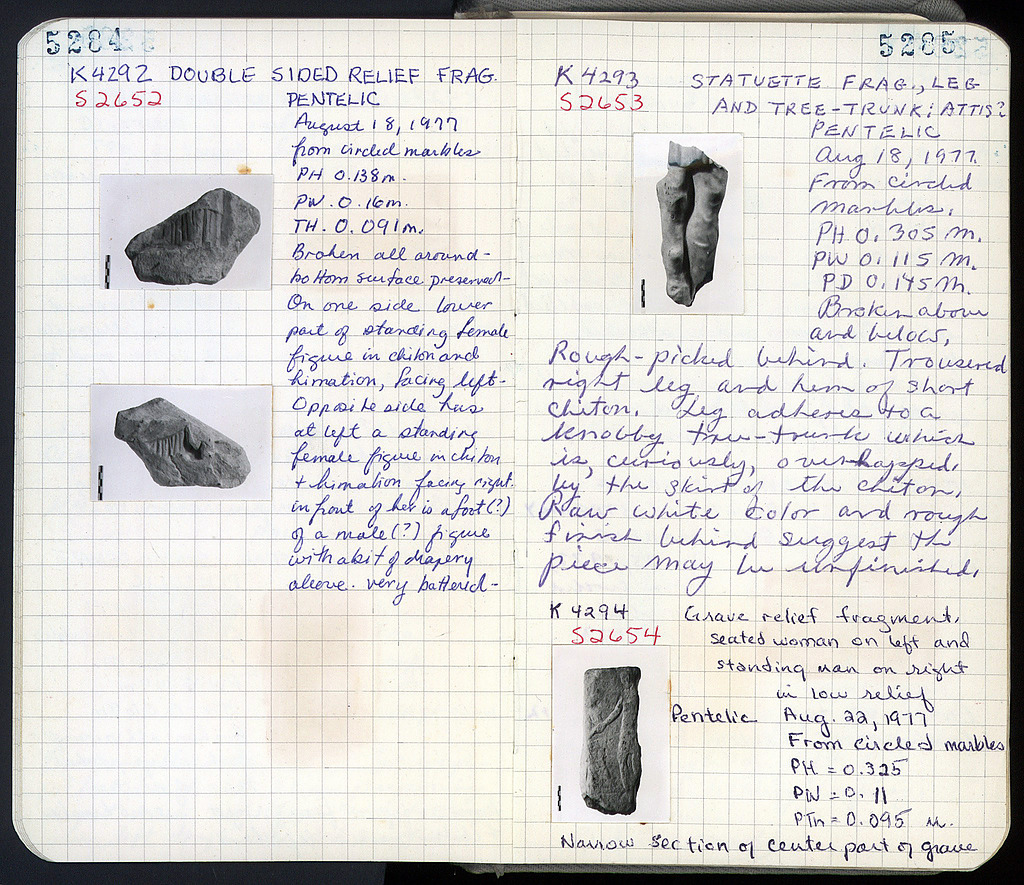 5284
K4292 DOUBLE SIDED RELIEF FRAG.
S2652
PENTELIC
August 18, 1977
from circled marbles
PH 0.138m.
PW. 0.16m.
TH. 0.091m.
Broken all around-
bottom surface preserved-
On one side lower
part of standing female
figure in chiton and
himation, facing left-
Opposite side has
at left a standing
female figure in chiton
+ himation facing right.
in front of her is a foot(?)
of a male(?) figure
with a bit of drapery
above. very battered-
5285
K4293 STATUETTE FRAG., LEG
S2653 AND TREE-TRUNK; ATTIS?
PENTELIC
Aug 18, 1977.
From circled
marbles.
PH 0.305 M.
PW 0.115 M.
PD 0.145 M.
Broken above
and below,
Rough-picked behind. Trousered
right leg and hem of short
chiton. Leg adheres to a
knobby tree-trunk which
is, curiously, overhapped,
by the skirt of the chiton.
Raw white color and rough
finish behind suggest the
piece may be unfinished.
K 4294 Grave relief fragment.
S2654 seated woman on left and
standing man on right
in low relief
Pentelic Aug. 22, 1977
From circled marbles
PH = 0.325
PW = 0.11
PTh = 0.095 m.
Narrow section of center part of grave